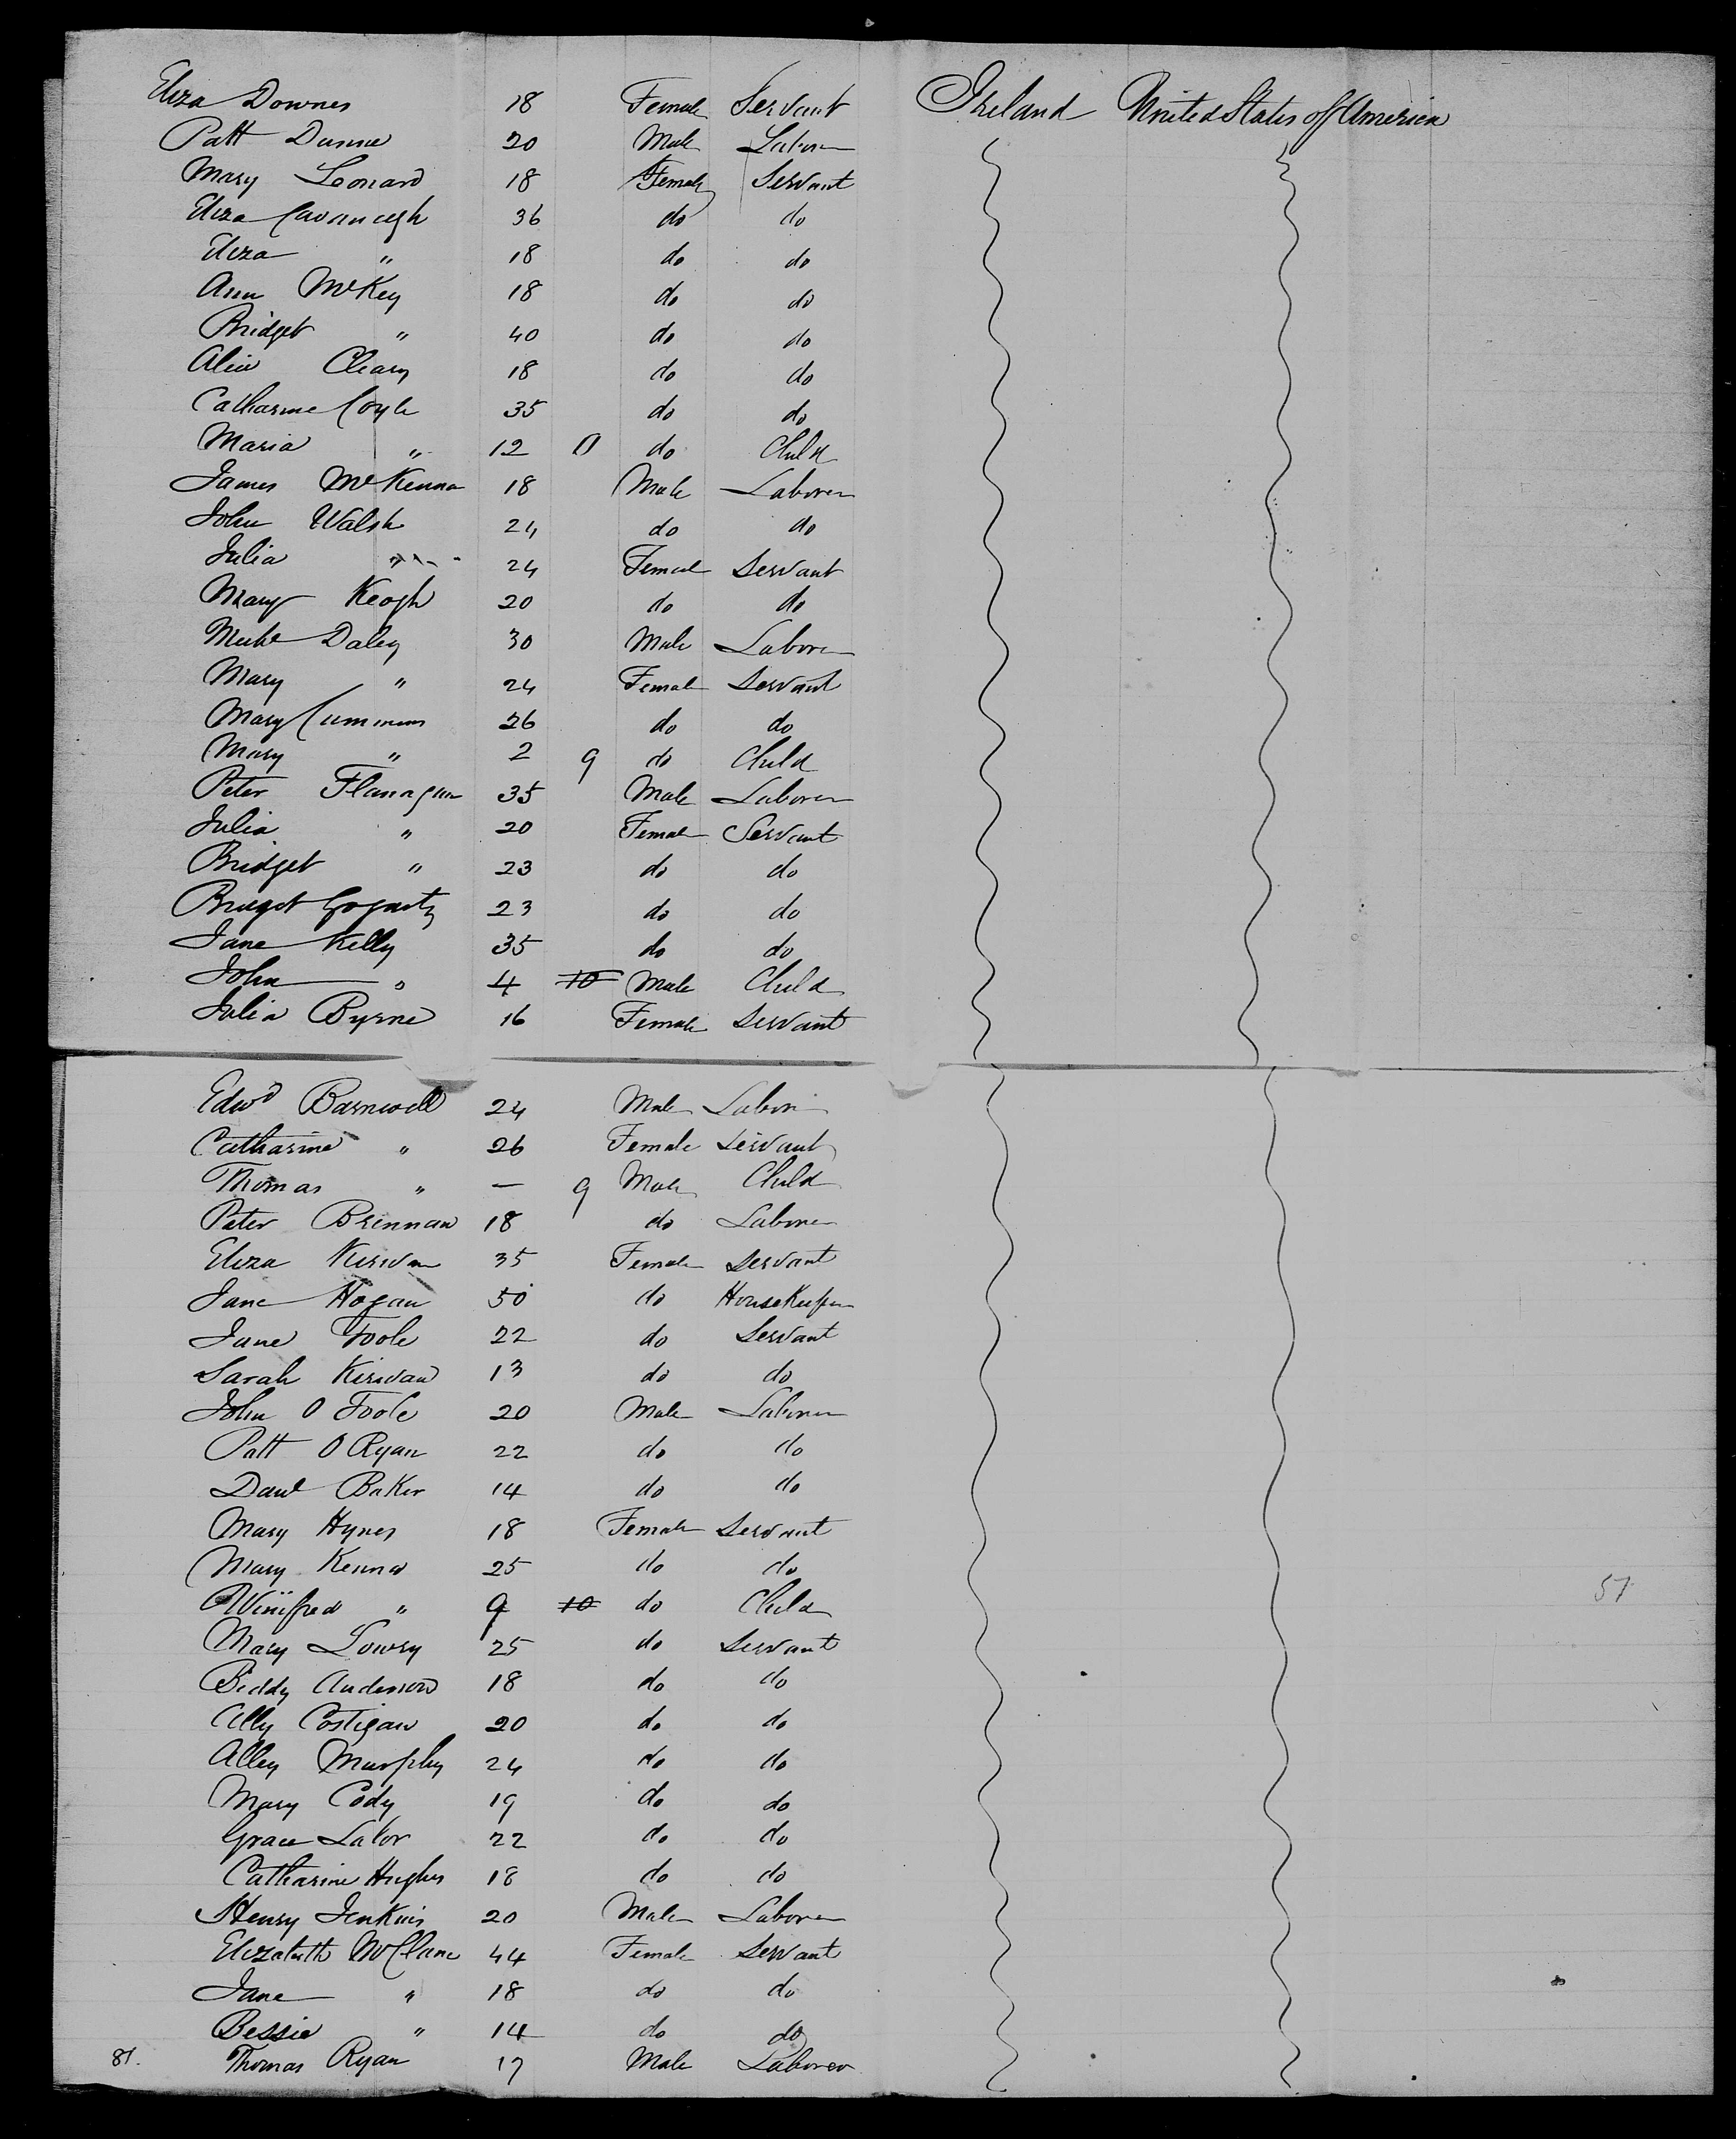 Eliza Downes 18 Female Servant Ireland United States of America
Patt Dunne 20 Male Laborer
Mary Leonard 18 Female Servant
Eliza Cavanagh 36 do do
Eliza " 18 do do
Ann McKey 18 do do
Bridget " 40 do do
Cleary 18 do do
Catharine Coyle 35 do do
Maria " 12 0 do Child
James McKenna 18 Male Laborer
John Walsh 24 do do
Julia " 24 Female Servant
Mary Keogh 20 do do
Daley 30 Male Laborer
Mary " 24 Female Servant
Mary Cummins 26 do do
Mary " 2 9 do Child
Peter Flanagan 35 Male Laborer
Julia " 20 Female Servant
Bridget " 23 do do
Bridget Gogarty 23 do do
Jane Kelly 35 do do
John " 4 10 Male Child
Julia Byrne 16 Female Servant
Edwd Barnwell 24 Male Laborer
Catharine " 26 Female Servant
Thomas " — 9 Male Child
Peter Brennan 18 do Laborer
Eliza Kirwan 35 Female Servant
Jane Hogan 50 do HouseKeeper
Jane Toole 22 do Servant
Sarah Kirwan 13 do do
John O Toole 20 Male Laborer
Patt O Ryan 22 do do
Danl Baker 14 do do
Mary Hynes 18 Female Servant
Mary Kenna 25 do do
Winifred " 9 10 do Child 57
Mary Lowry 25 do Servant
Biddy Anderson 18 do do
Costigan 20 do do
Alley Murphy 24 do do
Mary Cody 19 do do
Grace Lalor 22 do do
Catharine Hughes 18 do do
Henry Jenkins 20 Male Laborer
Elizabeth McClane 44 Female Servant
Jane " 18 do do
Bessie " 14 do do
81. Thomas Ryan 17 Male Laborer